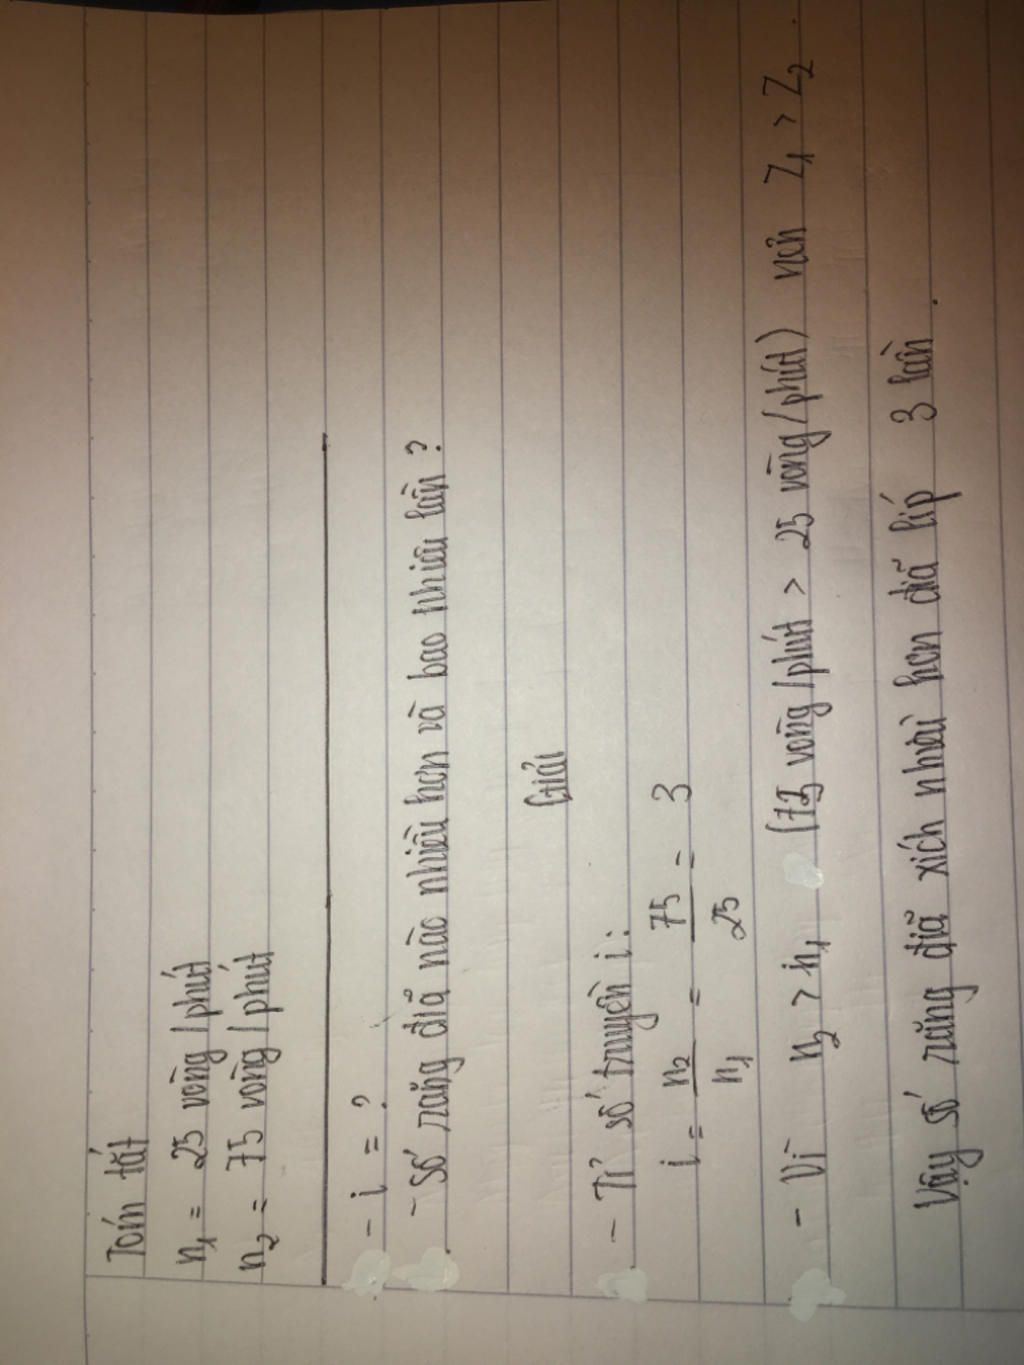 Tóm tắt
n₁ = 25 vòng/phút
n₂ = 75 vòng/phút
- i = ?
- Số răng đĩa nào nhiều hơn và bao nhiêu lần ?
Giải
- Tỉ số truyền i:
i = n₂/n₁ = 75/25 = 3
- Vì n₂ > n₁ (75 vòng/phút > 25 vòng/phút) nên Z₁ > Z₂.
Vậy số răng đĩa xích nhiều hơn đĩa líp 3 lần.